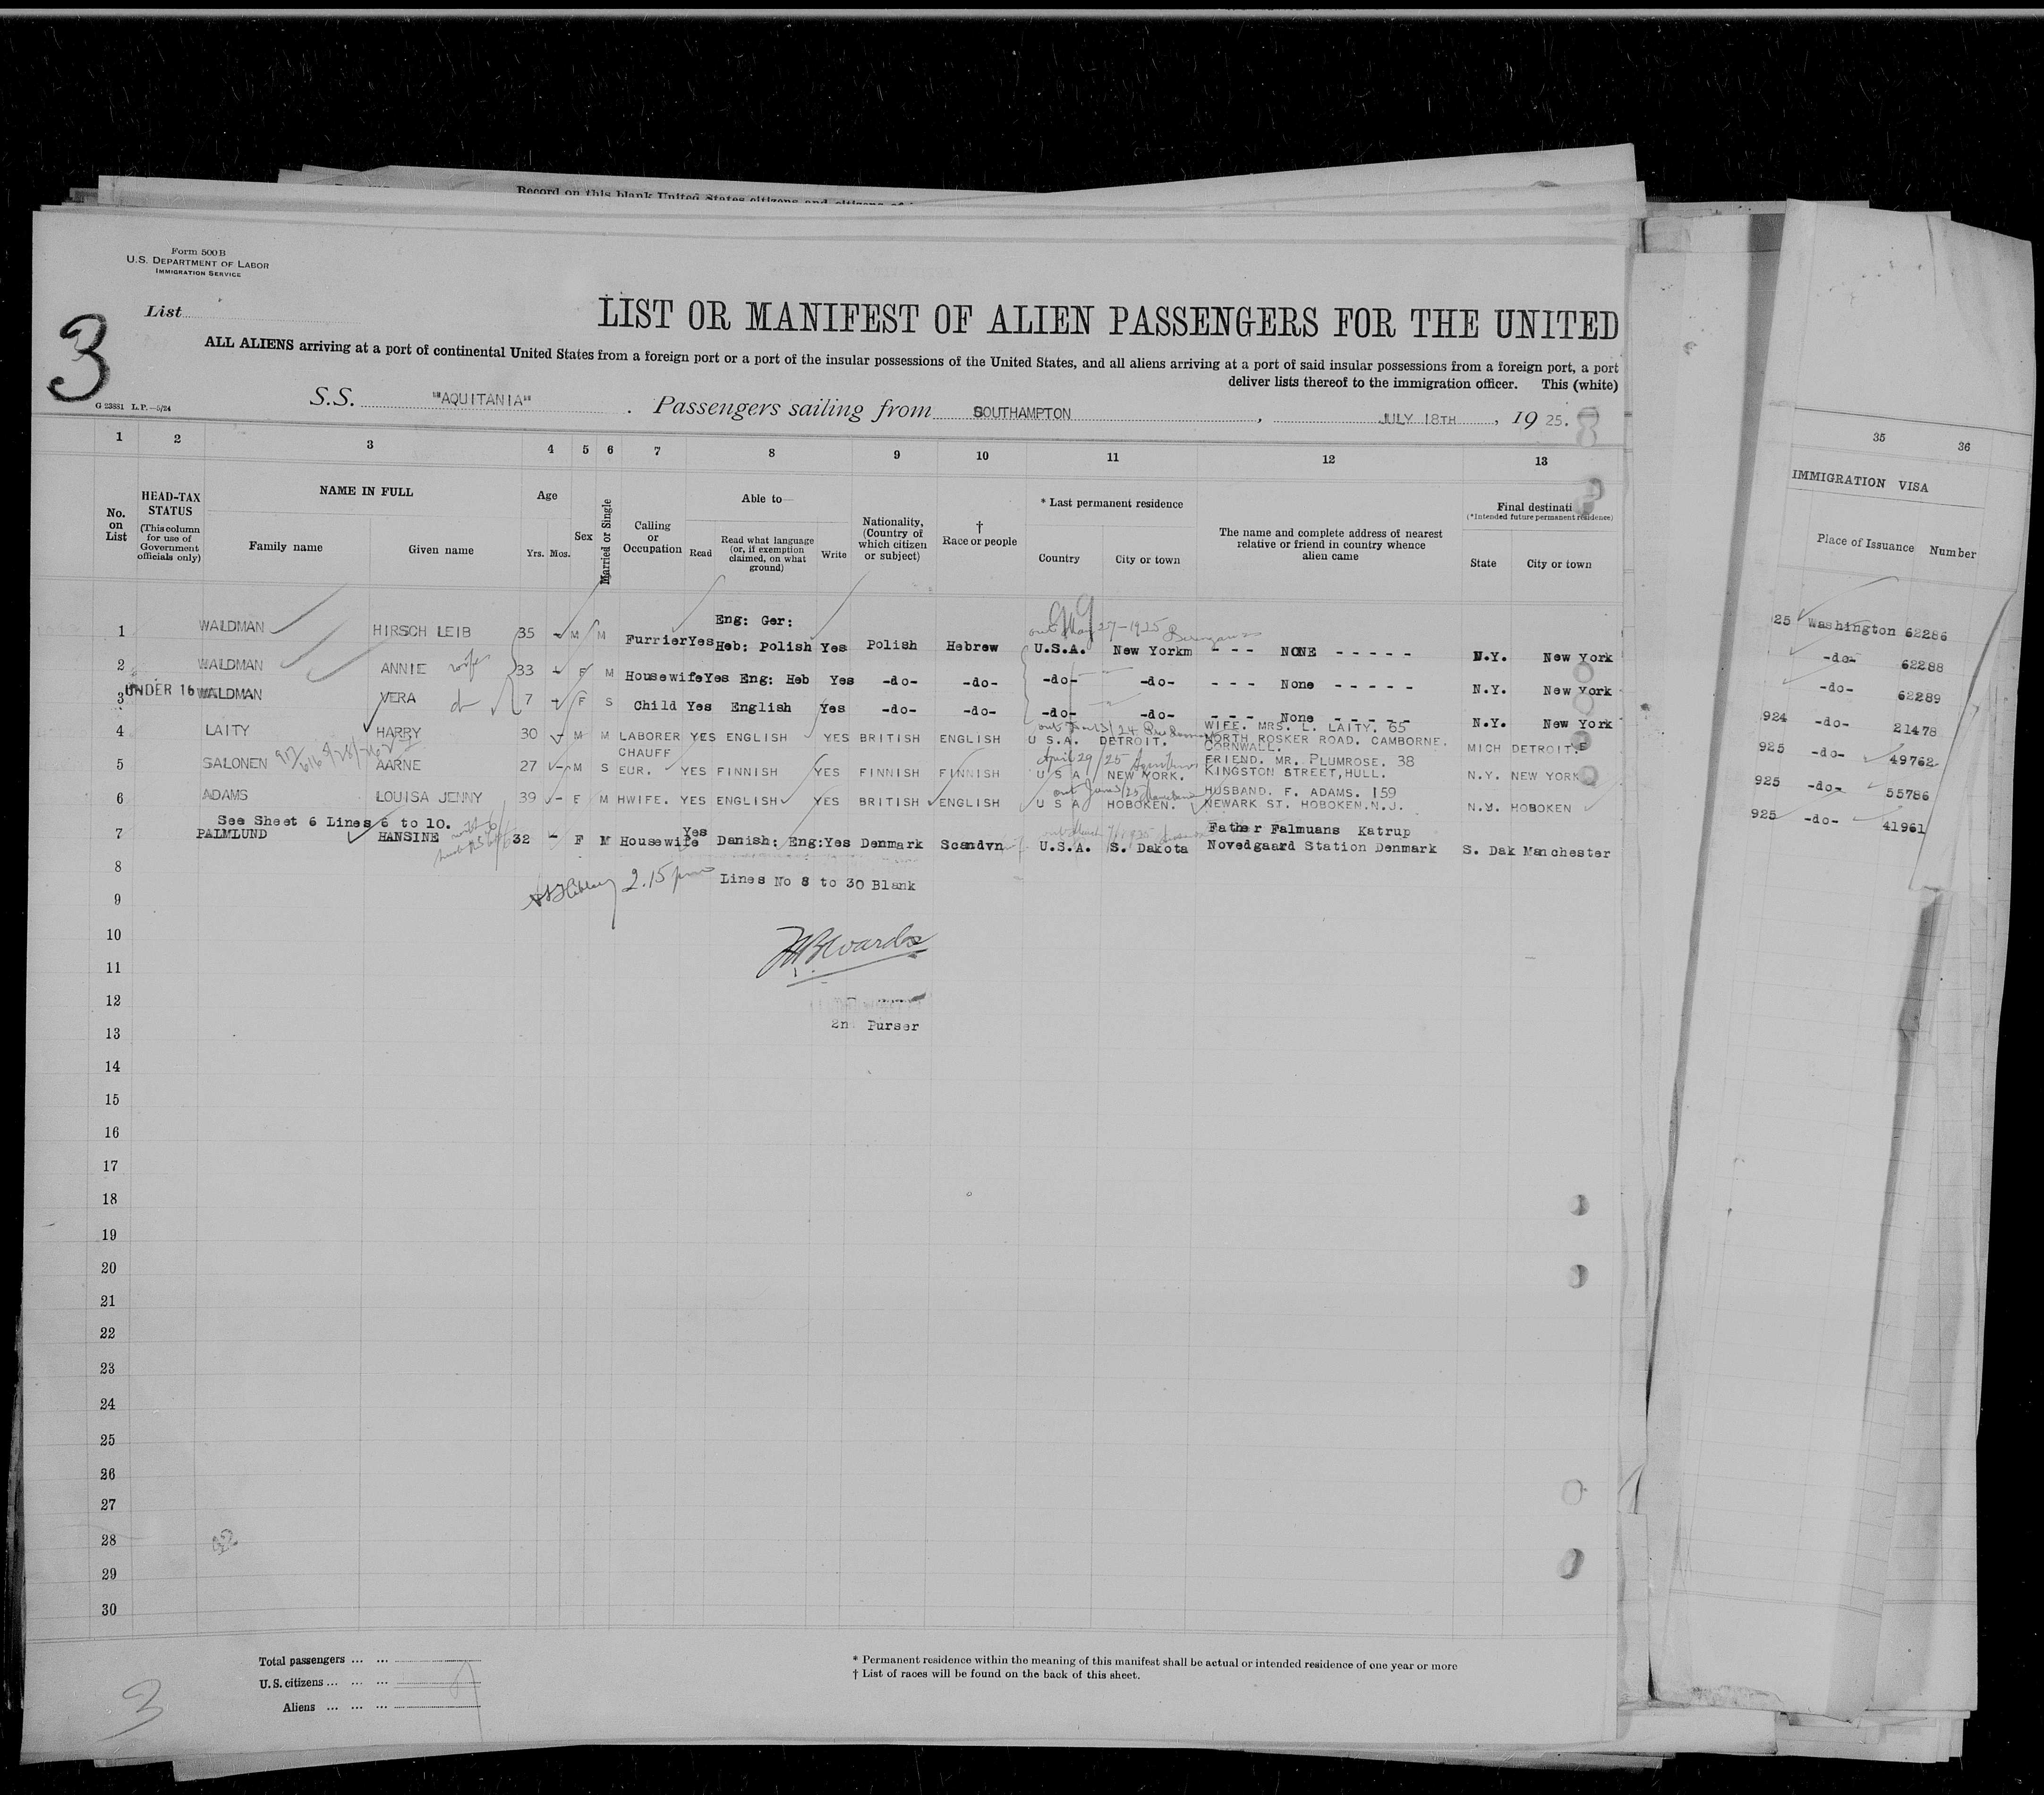 Record on this blank United States citizens and citizens of
Form 500B
U.S. DEPARTMENT OF LABOR
IMMIGRATION SERVICE
List
3
LIST OR MANIFEST OF ALIEN PASSENGERS FOR THE UNITED
ALL ALIENS arriving at a port of continental United States from a foreign port or a port of the insular possessions of the United States, and all aliens arriving at a port of said insular possessions from a foreign port, a port
deliver lists thereof to the immigration officer. This (white)
G 23881 L.P.—5/24
S.S. "AQUITANIA" . Passengers sailing from SOUTHAMPTON , JULY 18TH , 19 25.
1 2 3 4 5 6 7 8 9 10 11 12 13 35 36
No. on List
HEAD-TAX STATUS (This column for use of Government officials only)
NAME IN FULL
Family name Given name
Age
Yrs. Mos.
Sex
Married or Single
Calling or Occupation
Able to—
Read
Read what language (or, if exemption claimed, on what ground)
Write
Nationality, (Country of which citizen or subject)
† Race or people
* Last permanent residence
Country City or town
The name and complete address of nearest relative or friend in country whence alien came
Final destinati
(*Intended future permanent residence)
State City or town
IMMIGRATION VISA
Place of Issuance Number
1 WALDMAN HIRSCH LEIB 35 - M M Furrier Yes Eng: Ger: Heb: Polish Yes Polish Hebrew U.S.A. New Yorkm - - - NONE - - - - - N.Y. New York 25 Washington 62286
2 WALDMAN ANNIE wife 33 - F M Housewife Yes Eng: Heb Yes -do- -do- -do- -do- - - - None - - - - - N.Y. New York -do- 62288
3 UNDER 16 WALDMAN VERA 7 - F S Child Yes English Yes -do- -do- -do- -do- - - - None - - - - - N.Y. New York -do- 62289
4 LAITY HARRY 30 - M M LABORER YES ENGLISH YES BRITISH ENGLISH U S.A. DETROIT. WIFE. MRS. L. LAITY. 65 NORTH ROSKER ROAD. CAMBORNE. CORNWALL. MICH DETROIT. 924 -do- 21478
5 SALONEN AARNE 27 - M S CHAUFF EUR. YES FINNISH YES FINNISH FINNISH April 29/25 U S A NEW YORK. FRIEND. MR. PLUMROSE. 38 KINGSTON STREET, HULL. N.Y. NEW YORK 925 -do- 49762
6 ADAMS LOUISA JENNY 39 - F M HWIFE. YES ENGLISH YES BRITISH ENGLISH U S A HOBOKEN. HUSBAND. F. ADAMS. 159 NEWARK ST. HOBOKEN.N.J. N.Y. HOBOKEN 925 -do- 55786
See Sheet 6 Lines 6 to 10.
7 PALMLUND HANSINE 32 - F M Housewife Yes Danish: Eng: Yes Denmark Scandvn U.S.A. S. Dakota Father Falmuans Katrup Novedgaard Station Denmark S. Dak Manchester 925 -do- 41961
8
2.15 pm Lines No 8 to 30 Blank
9
10
11
12
2n Purser
13
14
15
16
17
18
19
20
21
22
23
24
25
26
27
28
29
30
Total passengers ... ...
U.S. citizens ... ... ...
Aliens ... ... ...
* Permanent residence within the meaning of this manifest shall be actual or intended residence of one year or more
† List of races will be found on the back of this sheet.
3